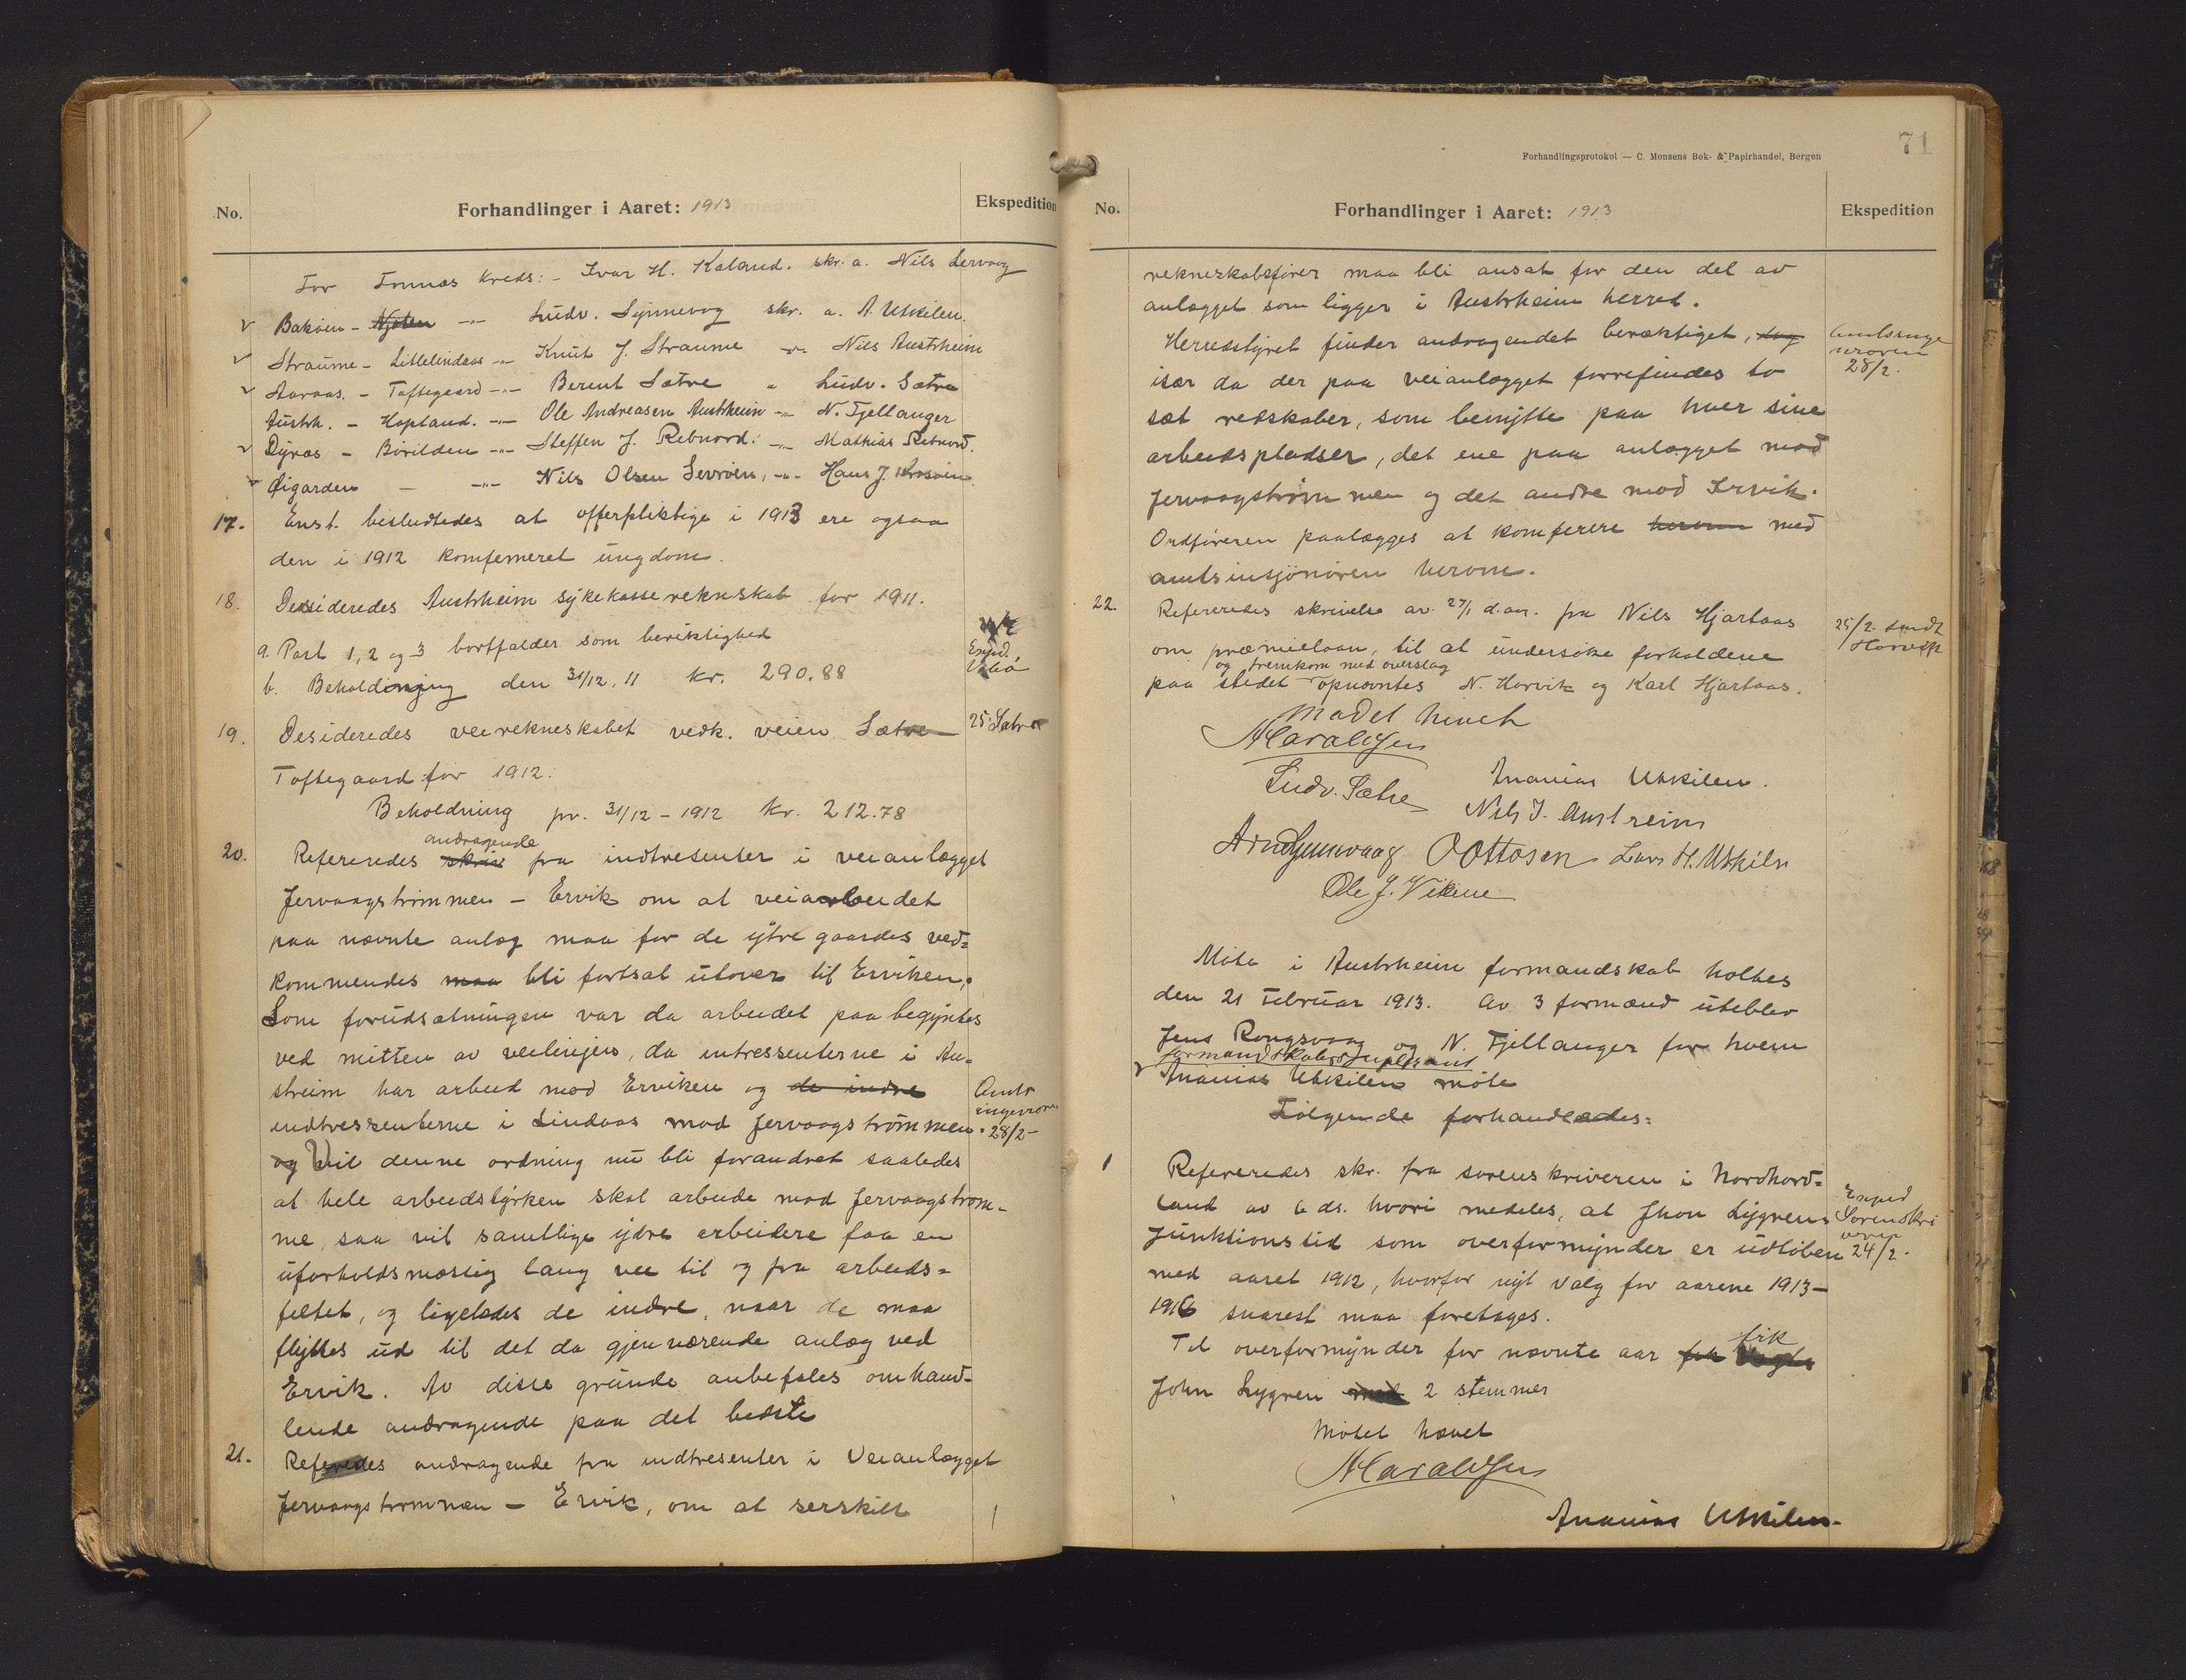 No.
Forhandlinger i Aaret: 1913
Ekspedition
For Fonnes Kreds: - Ivar H. Kaland. skr. a. Nils Lervaag
v Bakøen - Njøten -"- Ludv. Synnevog skr. a. A. Utkilen.
v Straume - Littlelindaas -"- Knut J. Straume -"- Nils Austrheim
v Aaraas. - Toftegaard -"- Berent Sætre " Ludv. Sætre
Austrh. - Kopland. -"- Ole Andreasen Austrheim -"- N. Fjellanger
v Dyraas - Børilden -"- Steffen J. Rebnord. -"- Mathias Rebnord.
v Øigarden - -"- Nils Olsen Leirøen, -"- Hans J. Krosøen
17. Enst. besluttedes at offerpliktige i 1913 ere ogsaa
den i 1912 komfermeret ungdom.
18. Desideredes Austrheim sykekasserekneskab for 1911.
a. Post 1, 2 og 3 bortfalder som beriktighed
b. Beholdning den 31/12. 11 kr. 290.88
Exped.
19. Desideredes veirekneskabet vedk. veien Sætre
25. Sætre
Toftegaard for 1912.
Beholdning pr. 31/12 - 1912 kr. 212.78
andragende
20. Refereredes skriv fra indtresenter i veianlægget
Jervaagstrømmen - Ervik om at veiarbeidet
paa nævnte anlæg maa for de ytre gaardes ved=
kommendes maa bli fortsat utover til Erviken,
Som forudsætningen var da arbeidet paa begyntes
ved mitten av veilinjen, da intressenterne i Au-
streim har arbeid mod Erviken og de indre
indtressenterne i Lindaas mod Jervaagstrømmen.
Amts
ingeniøren
28/2 -
og Vil denne ordning nu bli forandret saaledes
at hele arbeidstyrken skal arbeide mod Jervaagstrøm-
me, saa vil samtlige ydre arbeidere faa en
uforholdsmæssig lang vei til og fra arbeids=
feltet, og ligeledes de indre, naar de maa
flyttes ud til det da gjenværende anlæg ved
Ervik. Av disse grunde anbefales omhand-
lende andragende paa det bedste
21. Referedes andragende fra indtresenter i Veianlægget
Jervaagstrømmen - Ervik, om at serskilt
71
Forhandlingsprotokol — C. Monsens Bok- & Papirhandel, Bergen
No.
Forhandlinger i Aaret: 1913
Ekspedition
rekneskabsfører maa bli ansat for den del av
anlægget som ligger i Austrheim herred.
Herredstyret finder andragendet berættiget, dog
især da der paa veianlægget forrefindes to
28/2.
sæt redskaber, som benytte paa hver sine
arbeidspladser, det ene paa anlægget mod
Jervaagstrømmen og det andre mod Ervik.
Ordføreren paalægges at komferere herom med
amtsinsjønøren herom.
22. Refereredes skrivelse av 27/1 d. aar. fra Nils Hjartaas
25/2. sendt
om præmielaan, til at undersøke forholdene
og fremkom med overslag
paa stedet opnævntes N. Horvik og Karl Hjartaas.
Mødet hævet
A Haraldsen
Ludv. Sætre Ananias Utkilen.
Nils J. Austreim
Arn Synnevaag O Ottosen Lars H. Utkiln
Ole J. Vikene
Møte i Austrheim formandskab holtes
den 21 Februar 1913. Av 3 formænd uteblev
Jens Rongsvaag og N. Fjellanger for hvem
formandskabssupleant
v Ananias Utkilen møte
Følgende forhandledes:
1 Refereredes skr. fra sorenskriveren i Nordhord=
land av 6 ds. hvori medeles, at Jhon Lygrens
Exped
Sorenskri
veren
24/2.
Funktionstid som overformynder er udløben
med aaret 1912, hvorfor nyt valg for aarene 1913-
1916 snarest maa foretages.
fik
Til overformynder for nævnte aar
John Lygren med 2 stemmer
Møtet hævet
A Haraldsen
Ananias Utkilen.